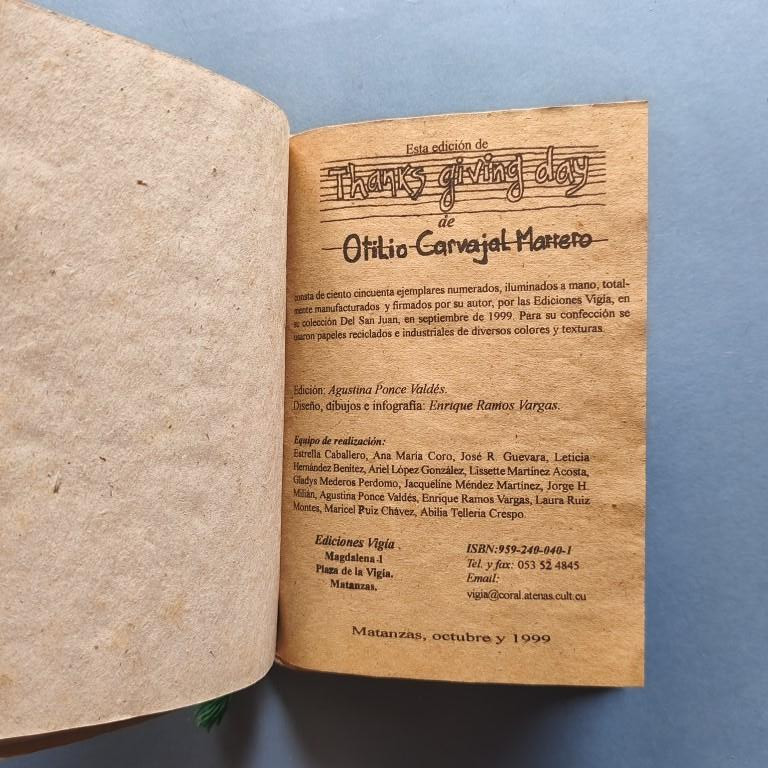 Esta edición de
Thanks giving day
de
Otilio Carvajal Marrero
consta de ciento cincuenta ejemplares numerados, iluminados a mano, total-
mente manufacturados y firmados por su autor, por las Ediciones Vigía, en
su colección Del San Juan, en septiembre de 1999. Para su confección se
usaron papeles reciclados e industriales de diversos colores y texturas.
Edición: Agustina Ponce Valdés.
Diseño, dibujos e infografía: Enrique Ramos Vargas.
Equipo de realización:
Estrella Caballero, Ana María Coro, José R. Guevara, Leticia
Hernández Benítez, Ariel López González, Lissette Martínez Acosta,
Gladys Mederos Perdomo, Jacqueline Méndez Martínez, Jorge H.
Milián, Agustina Ponce Valdés, Enrique Ramos Vargas, Laura Ruiz
Montes, Maricel Ruiz Chávez, Abilia Tellería Crespo.
Ediciones Vigía
Magdalena 1
Plaza de la Vigía.
Matanzas.
ISBN:959-240-040-1
Tel. y fax: 053 52 4845
Email:
vigia@coral.atenas.cult.cu
Matanzas, octubre y 1999